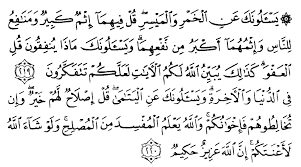 ۞ يَسْـَٔلُونَكَ عَنِ ٱلْخَمْرِ وَٱلْمَيْسِرِ ۖ قُلْ فِيهِمَآ إِثْمٌ كَبِيرٌ وَمَنَـٰفِعُ
لِلنَّاسِ وَإِثْمُهُمَآ أَكْبَرُ مِن نَّفْعِهِمَا ۗ وَيَسْـَٔلُونَكَ مَاذَا يُنفِقُونَ قُلِ
ٱلْعَفْوَ ۗ كَذَٰلِكَ يُبَيِّنُ ٱللَّهُ لَكُمُ ٱلْـَٔايَـٰتِ لَعَلَّكُمْ تَتَفَكَّرُونَ ٢١٩
فِى ٱلدُّنْيَا وَٱلْـَٔاخِرَةِ ۗ وَيَسْـَٔلُونَكَ عَنِ ٱلْيَتَـٰمَىٰ ۖ قُلْ إِصْلَاحٌ لَّهُمْ خَيْرٌ ۖ وَإِن
تُخَالِطُوهُمْ فَإِخْوَٰنُكُمْ ۚ وَٱللَّهُ يَعْلَمُ ٱلْمُفْسِدَ مِنَ ٱلْمُصْلِحِ ۚ وَلَوْ شَآءَ ٱللَّهُ
لَأَعْنَتَكُمْ ۚ إِنَّ ٱللَّهَ عَزِيزٌ حَكِيمٌ ٢٢٠